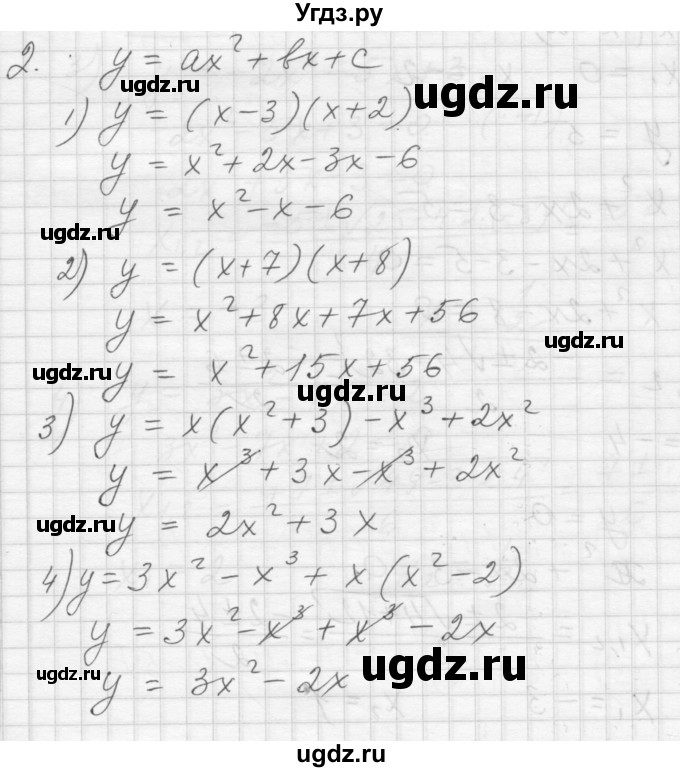 Угдз.ру
2. y = ax² + bx + c
ugdz.ru ugdz.ru
1) y = (x-3)(x+2)
y = x² + 2x - 3x - 6
y = x² - x - 6
ugdz.ru
2) y = (x+7)(x+8)
y = x² + 8x + 7x + 56
ugdz.ru
y = x² + 15x + 56
ugdz.ru ugdz.ru
3) y = x(x² + 3) - x³ + 2x²
y = x³ + 3x - x³ + 2x²
ugdz.ru y = 2x² + 3x
4) y = 3x² - x³ + x(x² - 2)
y = 3x² - x³ + x³ - 2x
ugdz.ru y = 3x² - 2x ugdz.ru
ugdz.ru